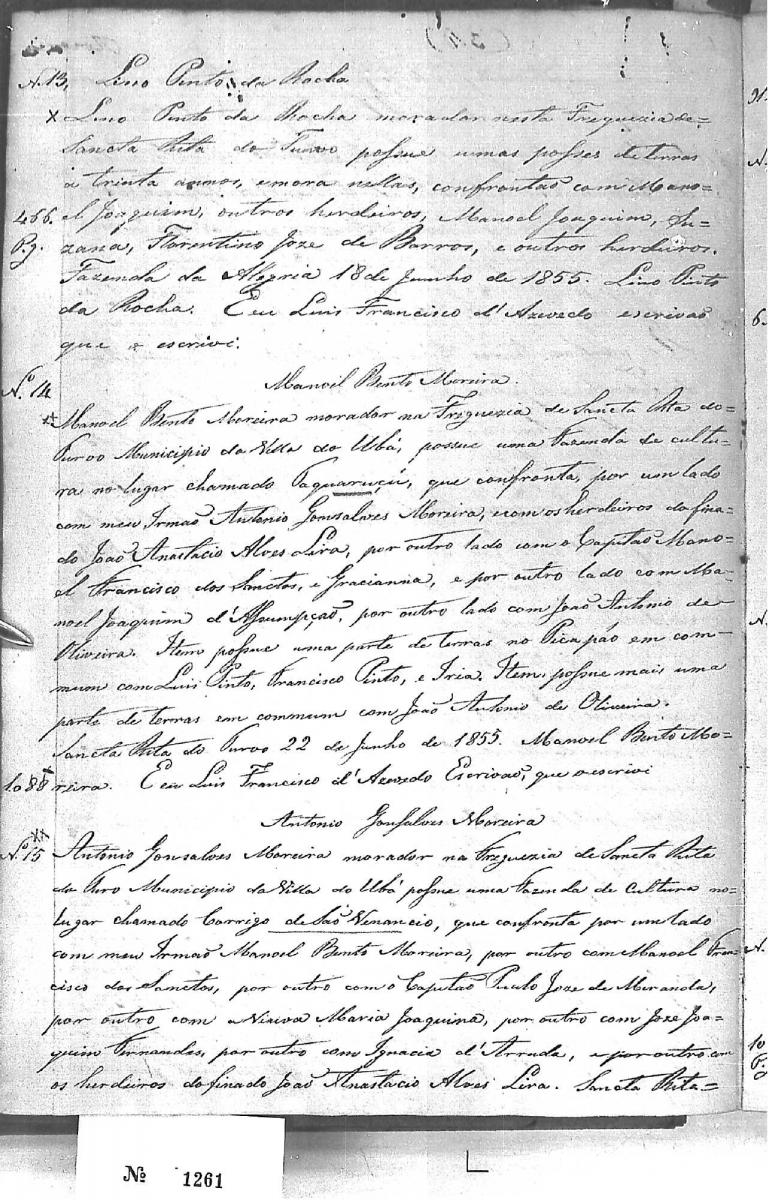 N. 13, Lino Pinto da Rocha
X Lino Pinto da Rocha morador nesta Freguezia de=
Sancta Rita do Turvo possue umas posses de terras
a trinta annos, e mora nellas, confrontaõ com Mano=
466. el Joaquim, outros herdeiros, Manoel Joaquim, Su=
P.g. zana, Florentino Joze de Barros, e outros herdeiros.
Fazenda da Alegria 18 de Junho de 1855. Lino Pinto
da Rocha. E eu Luis Francisco d'Azevedo escrivaõ
que o escrivi.
Manoel Bento Moreira.
N.º 14
Manoel Bento Moreira morador na Freguezia de Sancta Rita do=
Turvo Municipio da Villa do Ubá, possue uma Fazenda de cultu=
ra no lugar chamado Taquaruçú, que confronta, por um lado
com meu Irmaõ Antonio Gonsalves Moreira, e com os herdeiros do fina=
do Joaõ Anastacio Alves Lira, por outro lado com o Capitaõ Mano=
el Francisco dos Sanctos, e Gracianna, e por outro lado com Ma=
noel Joaquim d'Assumpçaõ, por outro lado com Joaõ Antonio de
Oliveira. Item possue uma parte de terras no Picapáo em com=
mum com Luis Pinto, Francisco Pinto, e Iria. Item possue mais uma
parte de terras em commum com Joaõ Antonio de Oliveira.
Sancta Rita do Turvo 22 de Junho de 1855. Manoel Bento Mo=
1088 reira. E eu Luis Francisco d'Azevedo Escrivaõ, que o escrivi
Antonio Gonsalves Moreira
N.º 15 Antonio Gonsalves Moreira morador na Freguezia de Sancta Rita
do Turo Municipio da Villa do Ubá possue uma Fazenda de Cultura no=
lugar chamado Corrigo de Saõ Venancio, que confronta por um lado
com meu Irmaõ Manoel Bento Moreira, por outro com Manoel Fran=
cisco dos Sanctos, por outro com o Capitaõ Paulo Joze de Miranda,
por outro com a Viuva Maria Joaquina, por outro com Joze Joa=
quim Fernandes, por outro com Ignacia d'Arruda, e por outro com
os herdeiros do finado Joaõ Anastacio Alves Lira. Sancta Rita=
Nº 1261